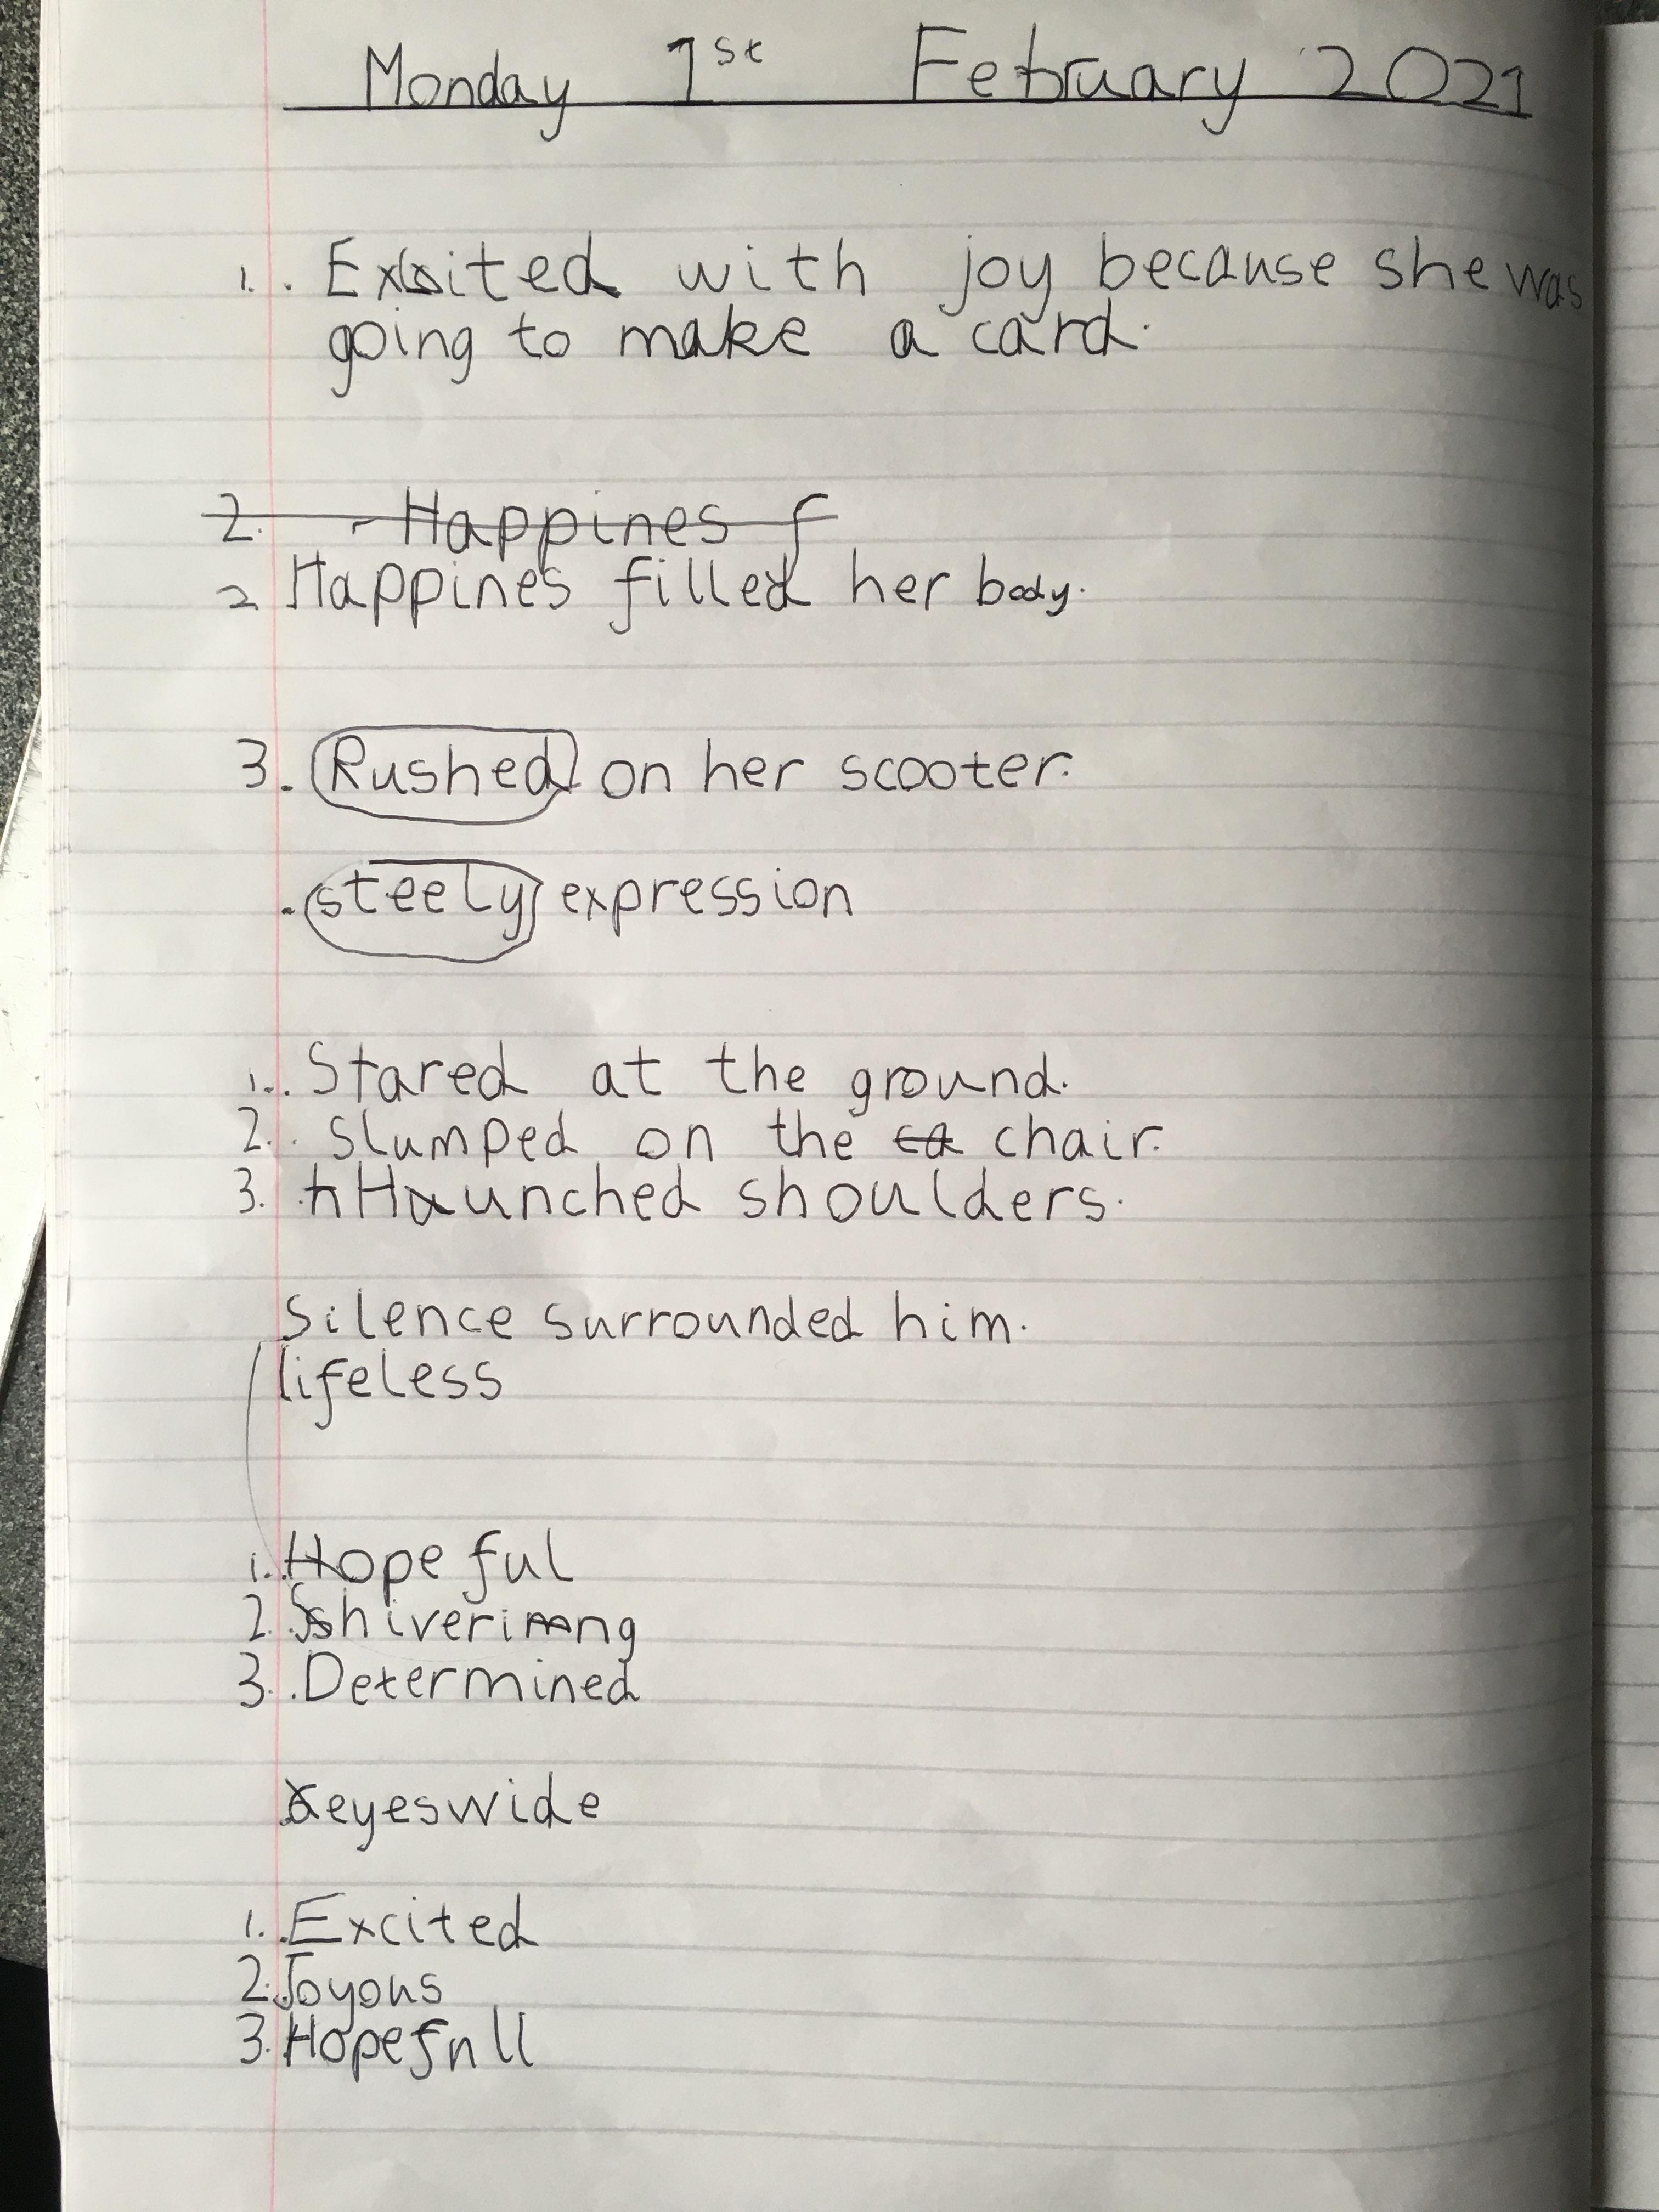 Monday 1st February 2021
1. . Exsited with joy because she was
going to make a card.
2. - Happines f
2 Happines filled her body.
3. Rushed on her scooter.
. steely expression
1. . Stared at the ground.
2. . Slumped on the ca chair.
3. . h Haunched shoulders.
Silence surrounded him.
lifeless
1. . Hopeful
2. . Shivering
3. . Determined
eyes wide
1. . Excited
2. . Joyous
3. . Hopefull